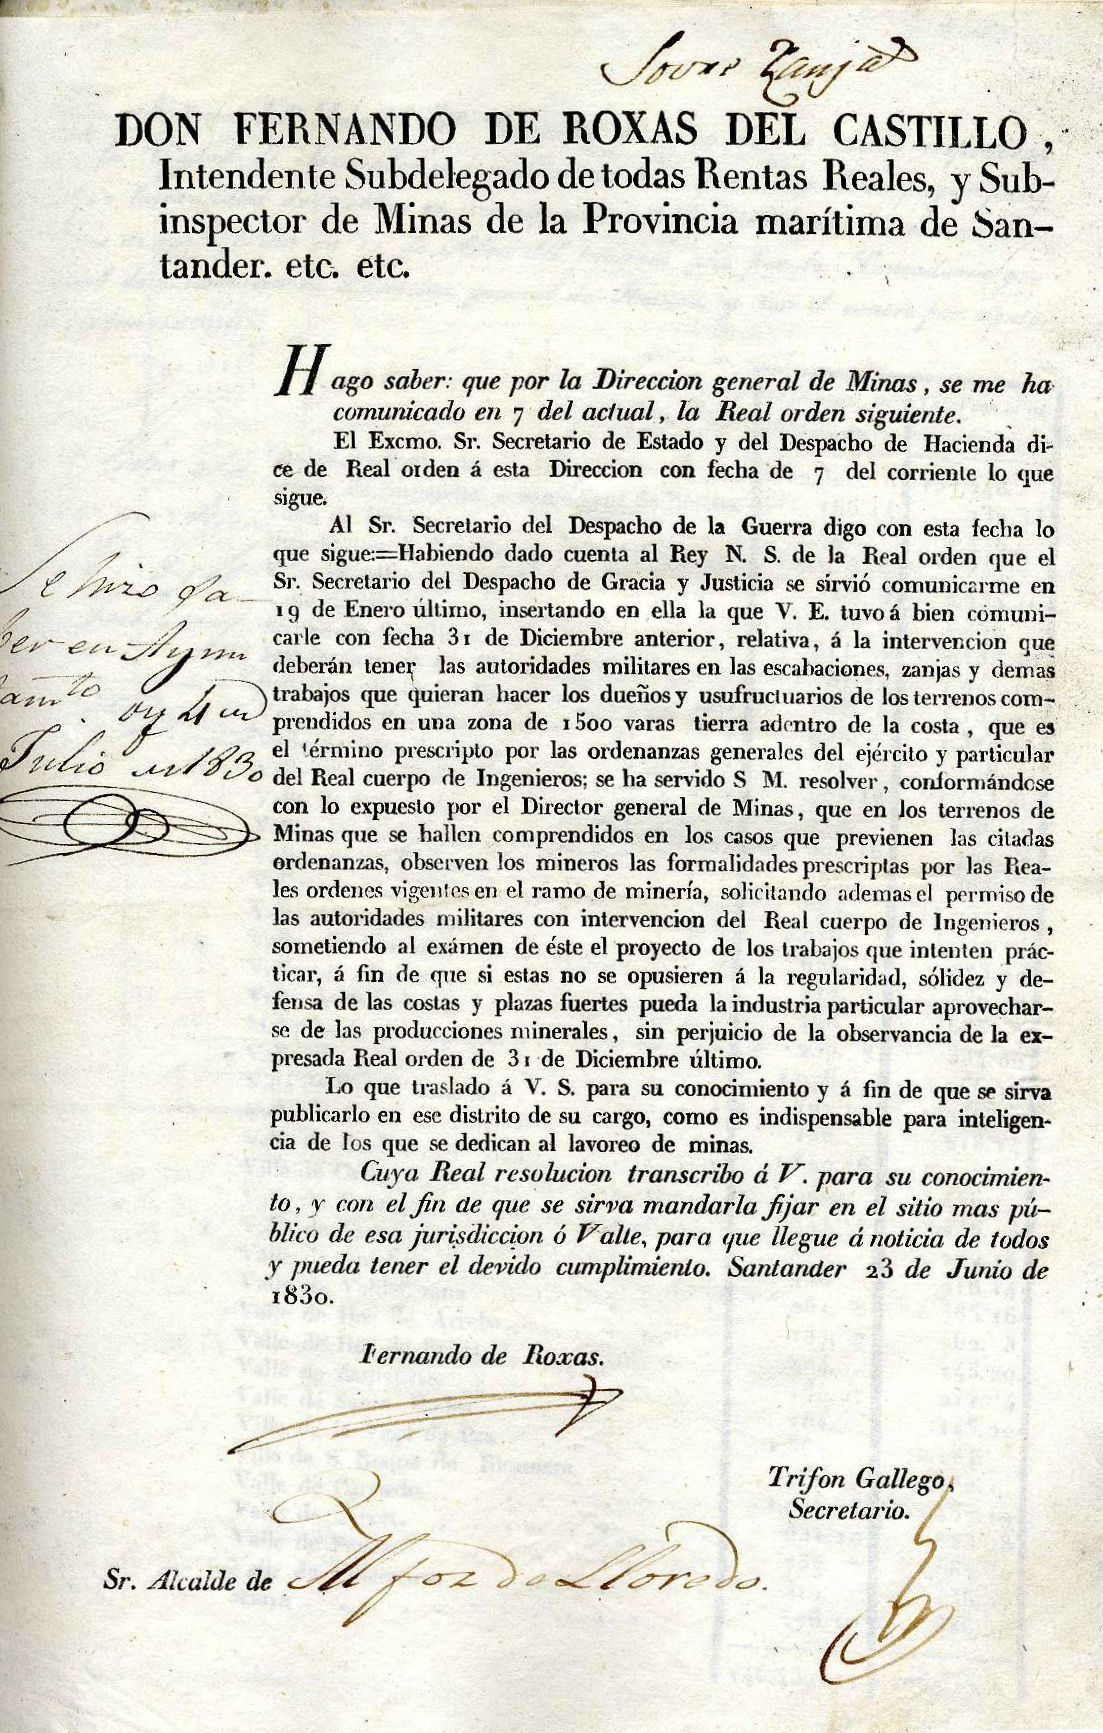 Sovre Zanjas
DON FERNANDO DE ROXAS DEL CASTILLO,
Intendente Subdelegado de todas Rentas Reales, y Sub-
inspector de Minas de la Provincia marítima de San-
tander. etc. etc.
Hago saber: que por la Direccion general de Minas, se me ha
comunicado en 7 del actual, la Real orden siguiente.
El Excmo. Sr. Secretario de Estado y del Despacho de Hacienda di-
ce de Real orden á esta Direccion con fecha de 7 del corriente lo que
sigue.
Al Sr. Secretario del Despacho de la Guerra digo con esta fecha lo
que sigue:=Habiendo dado cuenta al Rey N. S. de la Real orden que el
Sr. Secretario del Despacho de Gracia y Justicia se sirvió comunicarme en
19 de Enero último, insertando en ella la que V. E. tuvo á bien comuni-
carle con fecha 31 de Diciembre anterior, relativa, á la intervencion que
deberán tener las autoridades militares en las escabaciones, zanjas y demas
trabajos que quieran hacer los dueños y usufructuarios de los terrenos com-
prendidos en una zona de 1500 varas tierra adentro de la costa, que es
el término prescripto por las ordenanzas generales del ejército y particular
del Real cuerpo de Ingenieros; se ha servido S M. resolver, conformándose
con lo expuesto por el Director general de Minas, que en los terrenos de
Minas que se hallen comprendidos en los casos que previenen las citadas
ordenanzas, observen los mineros las formalidades prescriptas por las Rea-
les ordenes vigentes en el ramo de minería, solicitando ademas el permiso de
las autoridades militares con intervencion del Real cuerpo de Ingenieros,
sometiendo al exámen de éste el proyecto de los trabajos que intenten prác-
ticar, á fin de que si estas no se opusieren á la regularidad, sólidez y de-
fensa de las costas y plazas fuertes pueda la industria particular aprovechar-
se de las producciones minerales, sin perjuicio de la observancia de la ex-
presada Real orden de 31 de Diciembre último.
Lo que traslado á V. S. para su conocimiento y á fin de que se sirva
publicarlo en ese distrito de su cargo, como es indispensable para inteligen-
cia de los que se dedican al lavoreo de minas.
Cuya Real resolucion transcribo á V. para su conocimien-
to, y con el fin de que se sirva mandarla fijar en el sitio mas pú-
blico de esa jurisdiccion ó Valle, para que llegue á noticia de todos
y pueda tener el devido cumplimiento. Santander 23 de Junio de
1830.
Se hizo sa-
ber en Ayun
tamto
oy 4 de
Julio de 1830
Fernando de Roxas.
Trifon Gallego,
Secretario.
Sr. Alcalde de Alfoz de Lloredo.